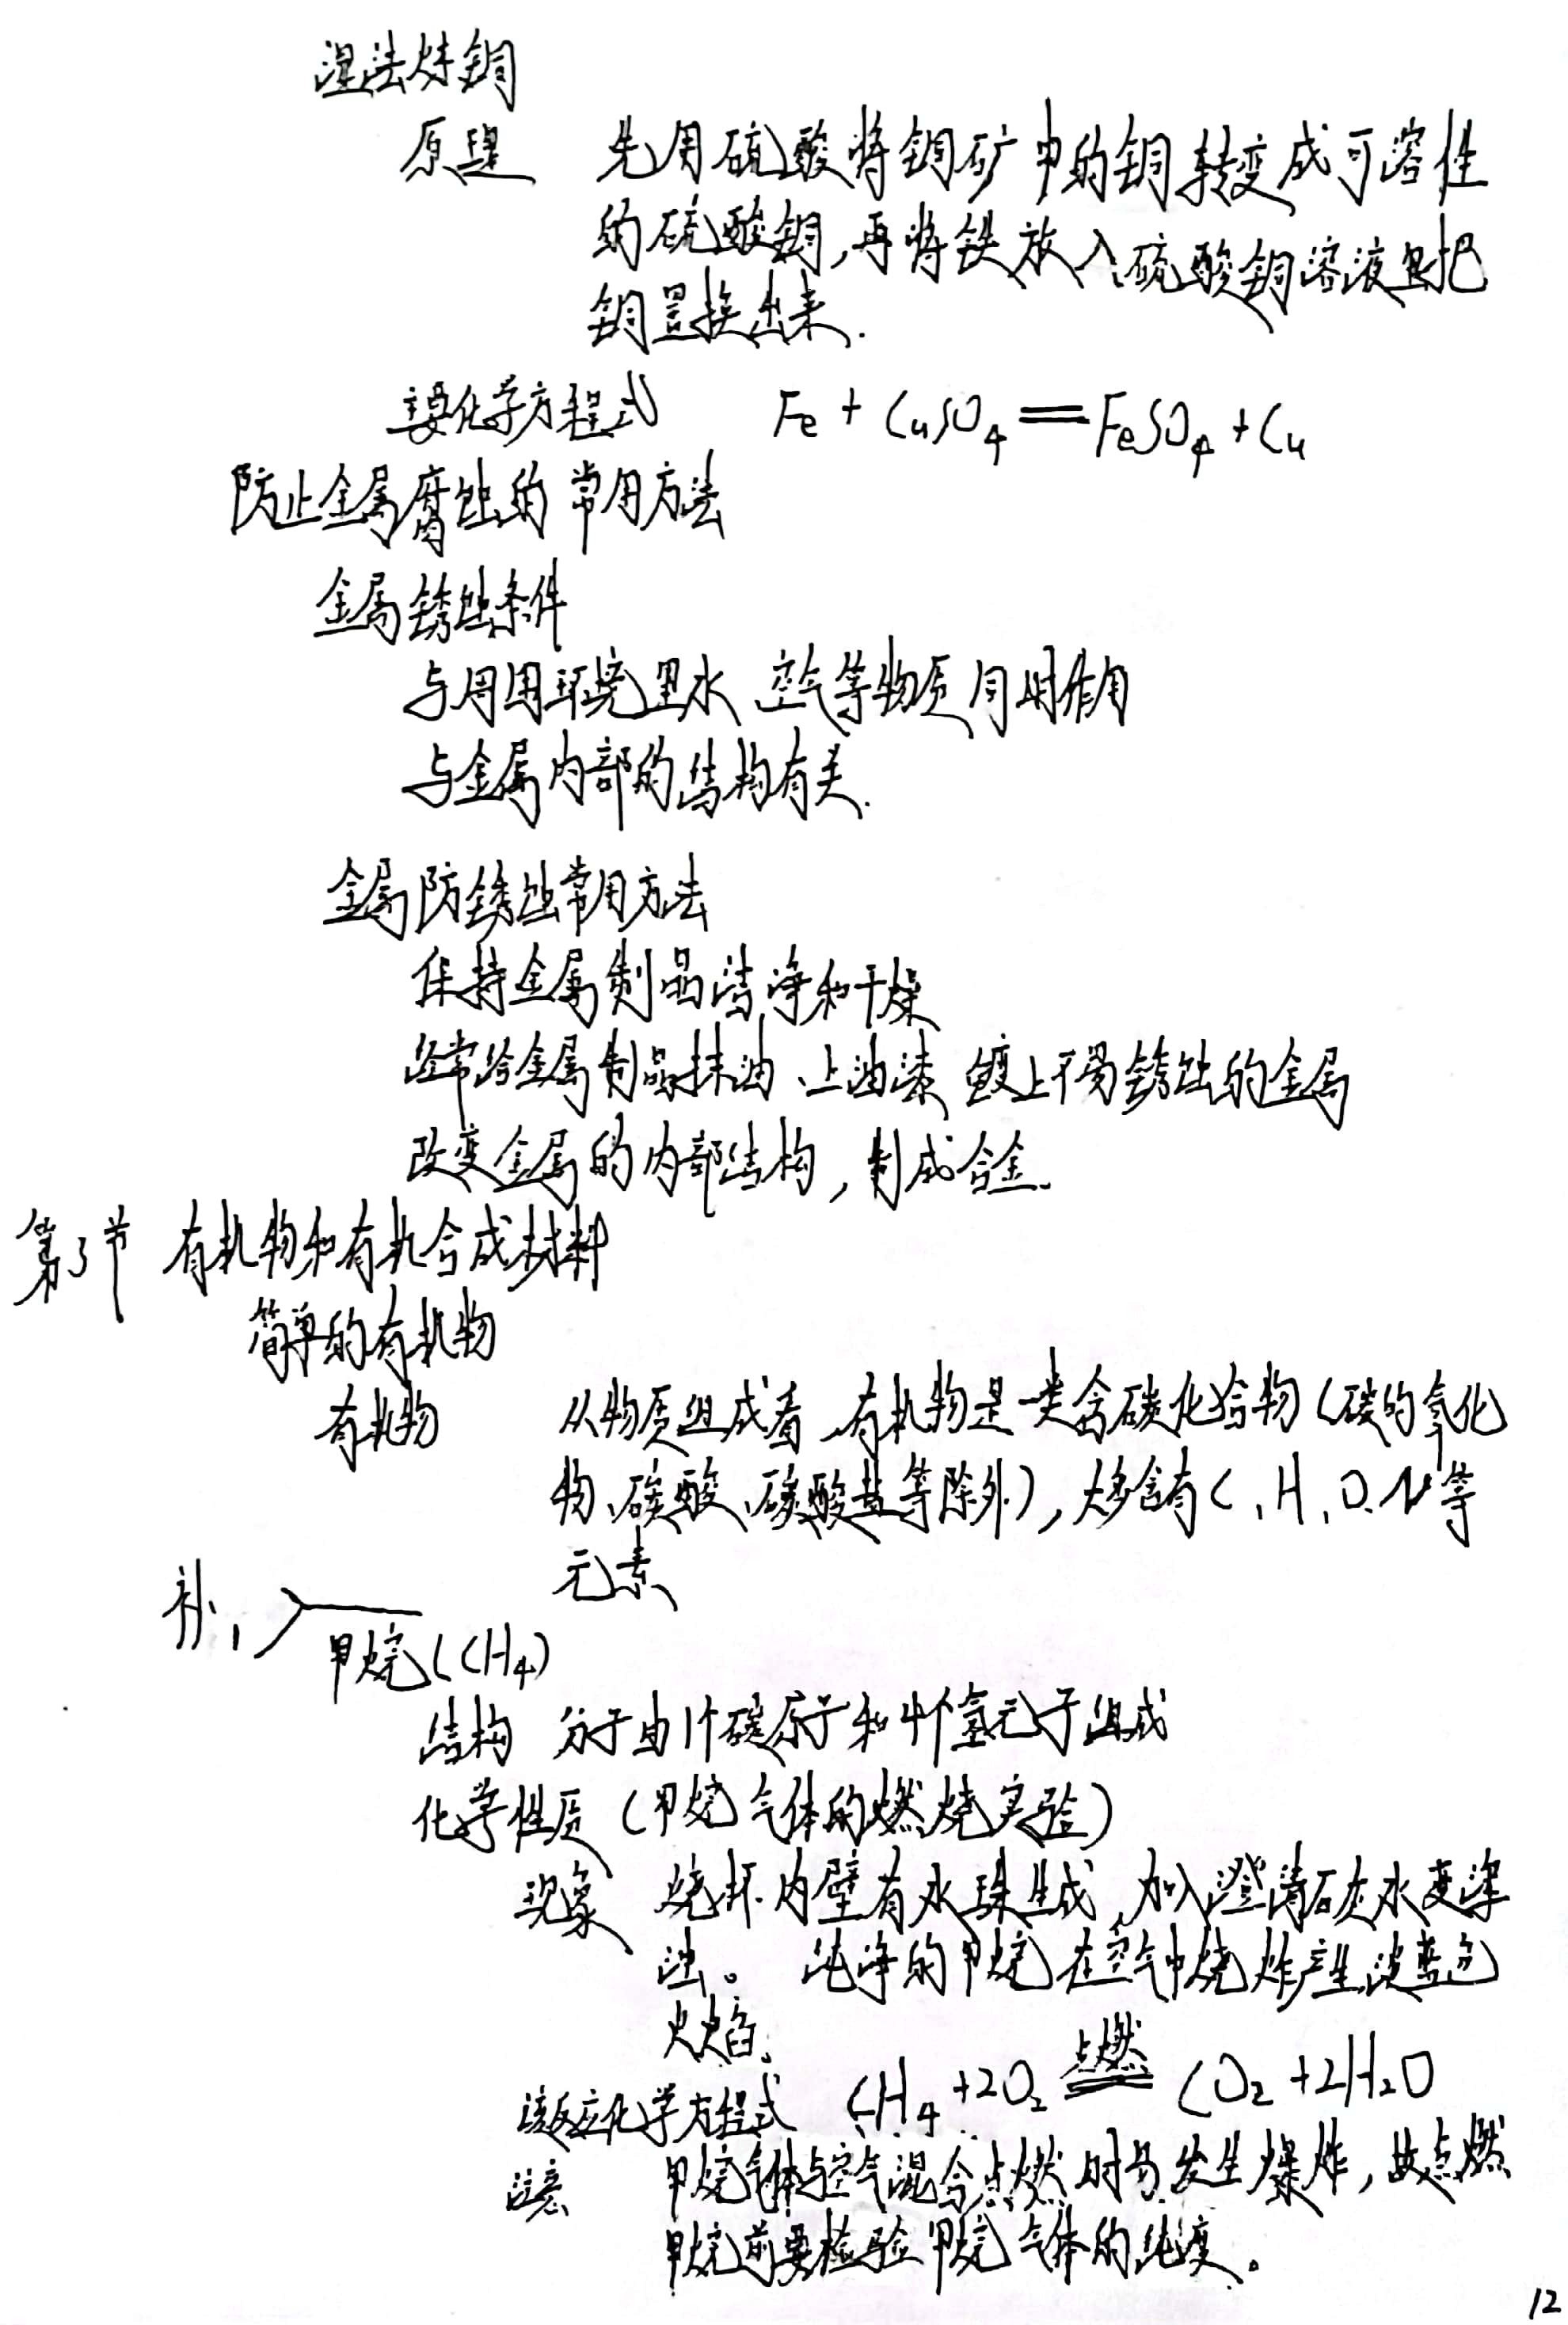 湿法炼铜
原理 先用硫酸将铜矿中的铜转变成可溶性
的硫酸铜,再将铁放入硫酸铜溶液里把
铜置换出来.
主要化学方程式 Fe + CuSO₄ == FeSO₄ + Cu
防止金属腐蚀的常用方法
金属锈蚀条件
与周围环境里水、空气等物质同时作用
与金属内部的结构有关.
金属防锈蚀常用方法
保持金属制品洁净和干燥
经常给金属制品抹油、上油漆、镀上不易锈蚀的金属
改变金属的内部结构,制成合金.
第3节 有机物和有机合成材料
简单的有机物
有机物 从物质组成看,有机物是一类含碳化合物(碳的氧化
物、碳酸、碳酸盐等除外),大多含有C、H、O、N等
元素
补1
甲烷(CH₄)
结构 分子由1个碳原子和4个氢元子组成
化学性质(甲烷气体的燃烧实验)
现象 烧杯内壁有水珠生成,加入澄清石灰水变浑
浊。 纯净的甲烷在空气中烧炸产生淡蓝色
火焰.
该反应化学方程式 CH₄ + 2O₂ 点燃== CO₂ + 2H₂O
注意 甲烷气体与空气混合点燃时易发生爆炸,故点燃
甲烷前要检验甲烷气体的纯度。
12